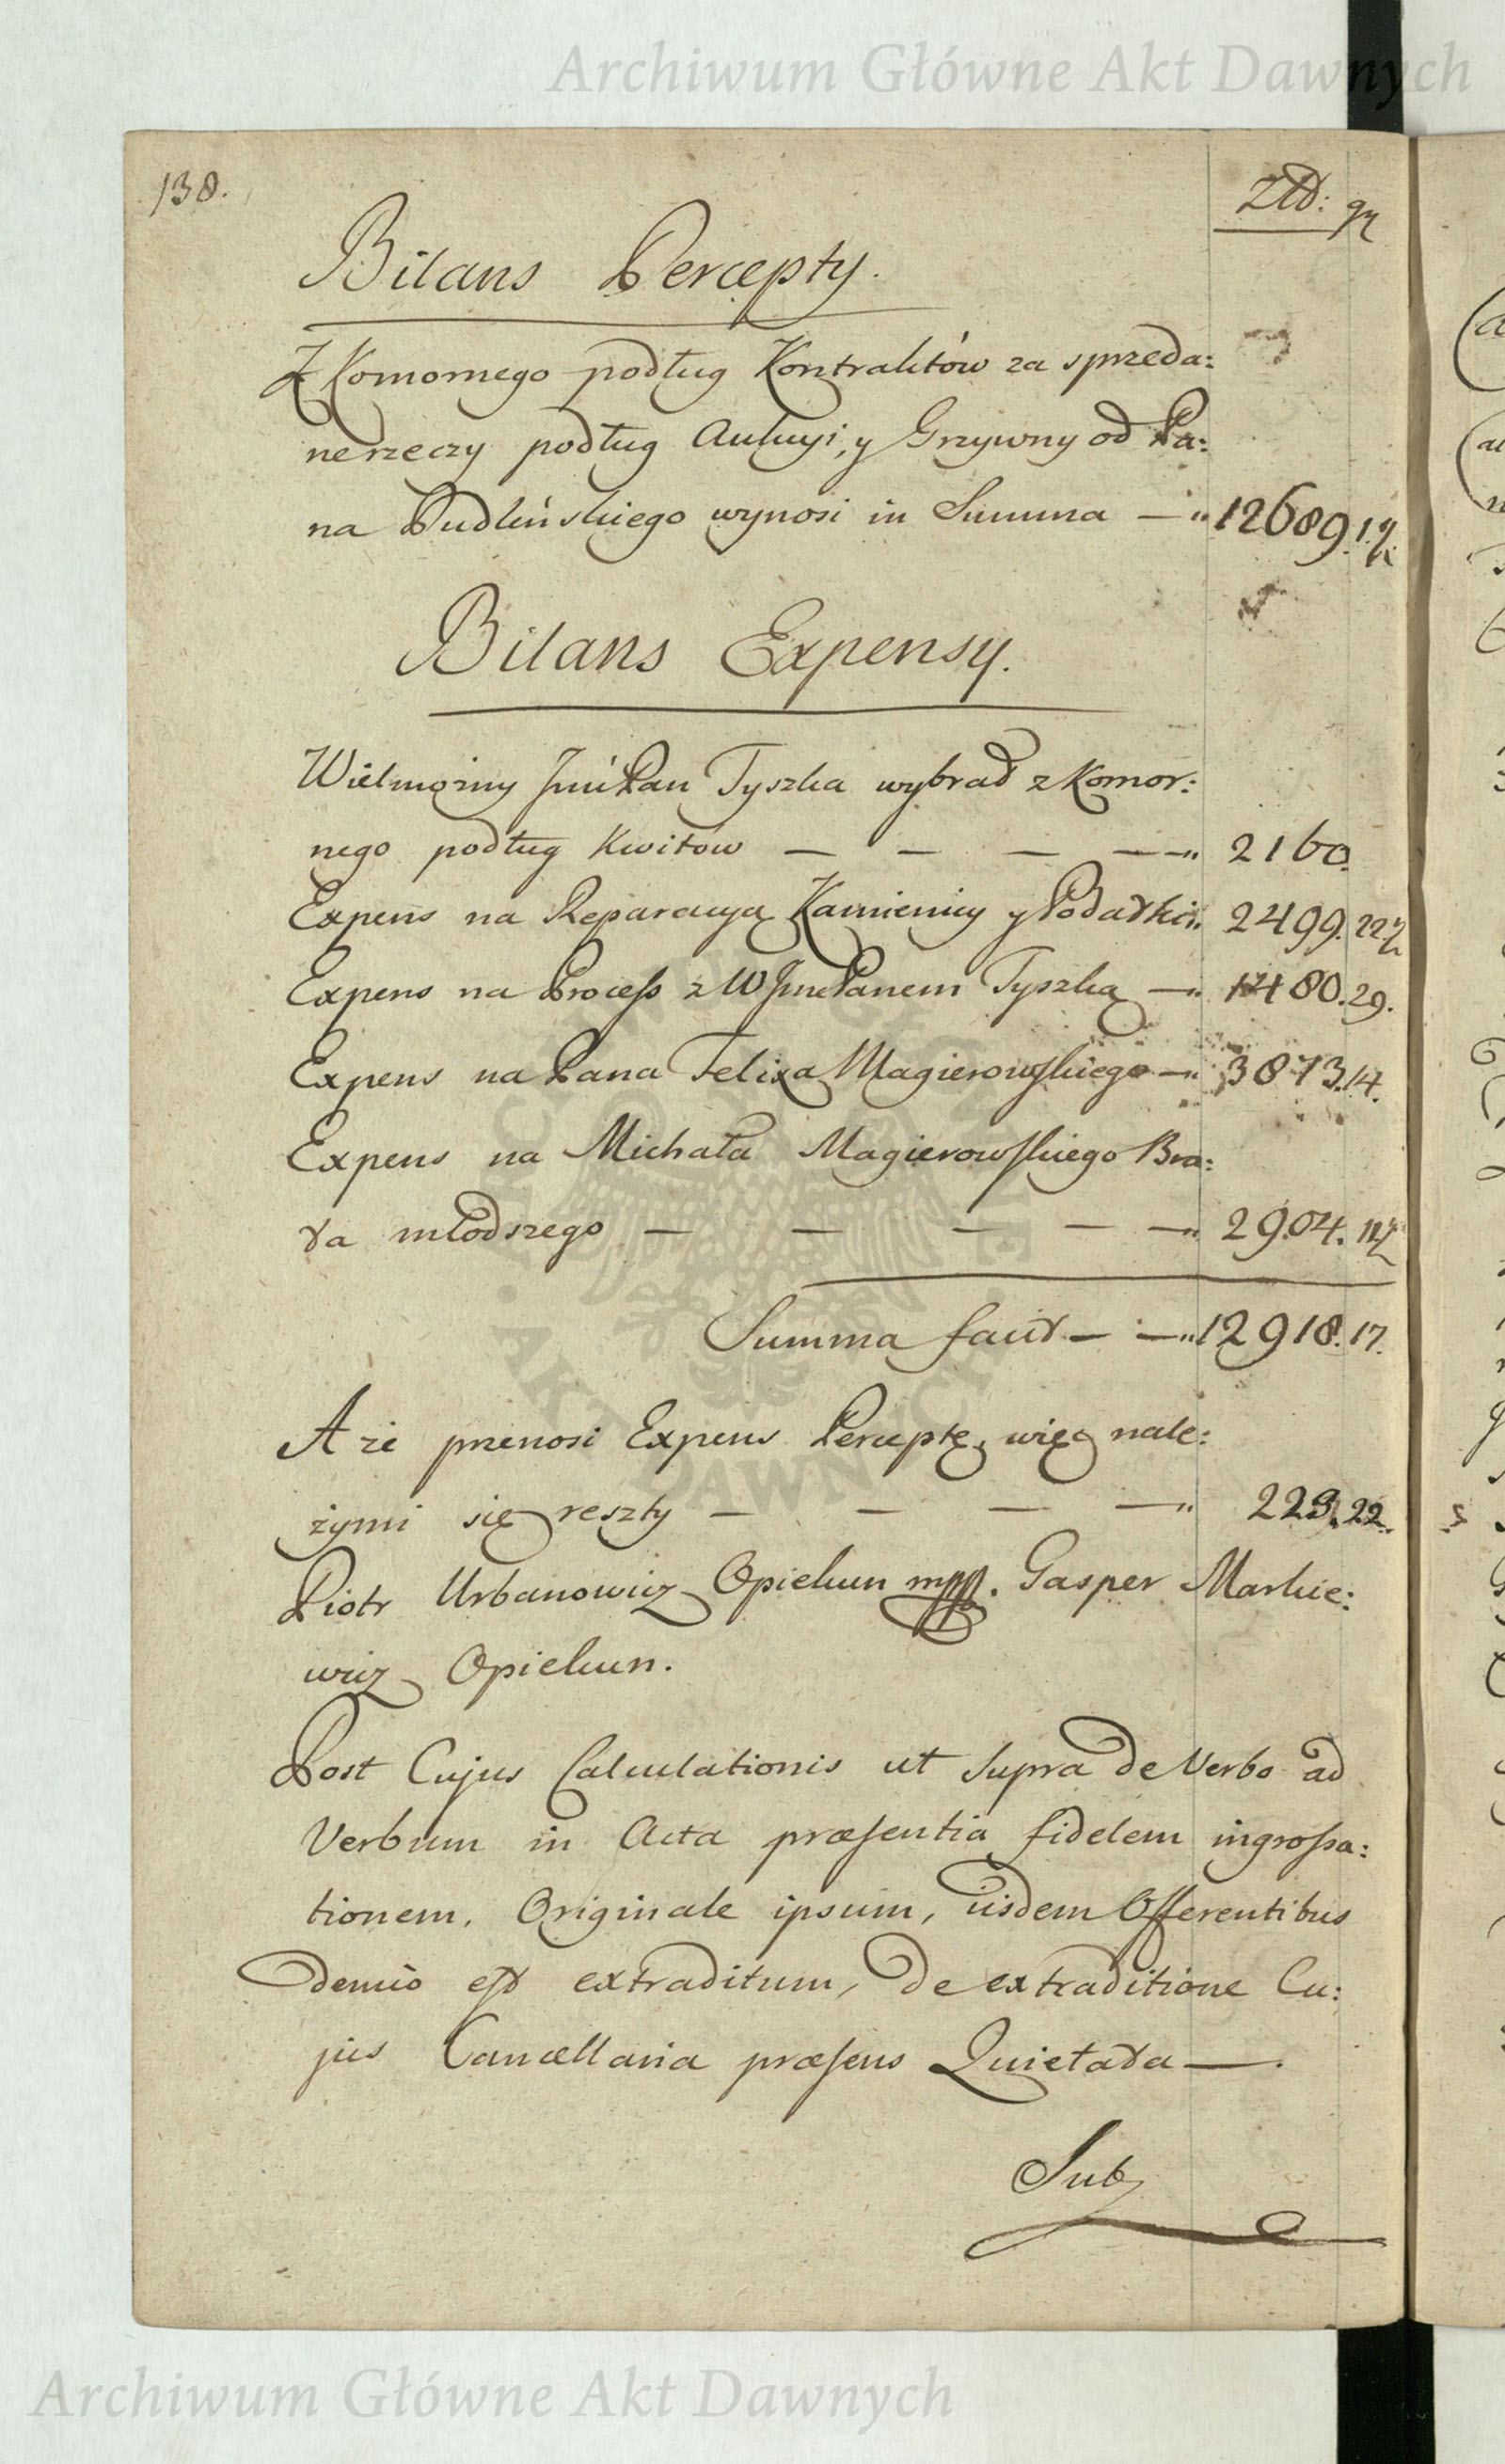 Archiwum Główne Akt Dawnych
138.
Złł: gr
Bilans Percepty.
Z Komornego podług Kontraktów za sprzeda:
ne rzeczy podług Aukcyi, y Grzywny od Pa:
na Dudlińskiego wynosi in Summa — 12689. 1½
Bilans Expensy.
Wielmożny Jmć Pan Tyszka wybrał z Komor:
nego podług Kwitów — — — — 2160.
Expens na Reparacyą Kamienicy y Podatki 2499. 22½
Expens na Process z W Jmć Panem Tyszką — 1480. 29.
Expens na Pana Felixa Magierowskiego — 3873. 14.
Expens na Michała Magierowskiego Bra:
ta młodszego — — — — — 2904. 11½
Summa facit — — 12918. 17.
A że przenosi Expens Perceptę, więc nale:
żymi się reszty — — — — 229. 22.
Piotr Urbanowicz Opiekun mpp. Gasper Markie:
wicz Opiekun.
Post Cujus Calculationis ut Supra de Verbo ad
Verbum in Acta præsentia fidelem ingrossa:
tionem, Originale ipsum, iisdem Offerentibus
denuo est extraditum, de extraditione Cu:
jus Cancellaria præsens Quietata —.
Sub
Archiwum Główne Akt Dawnych